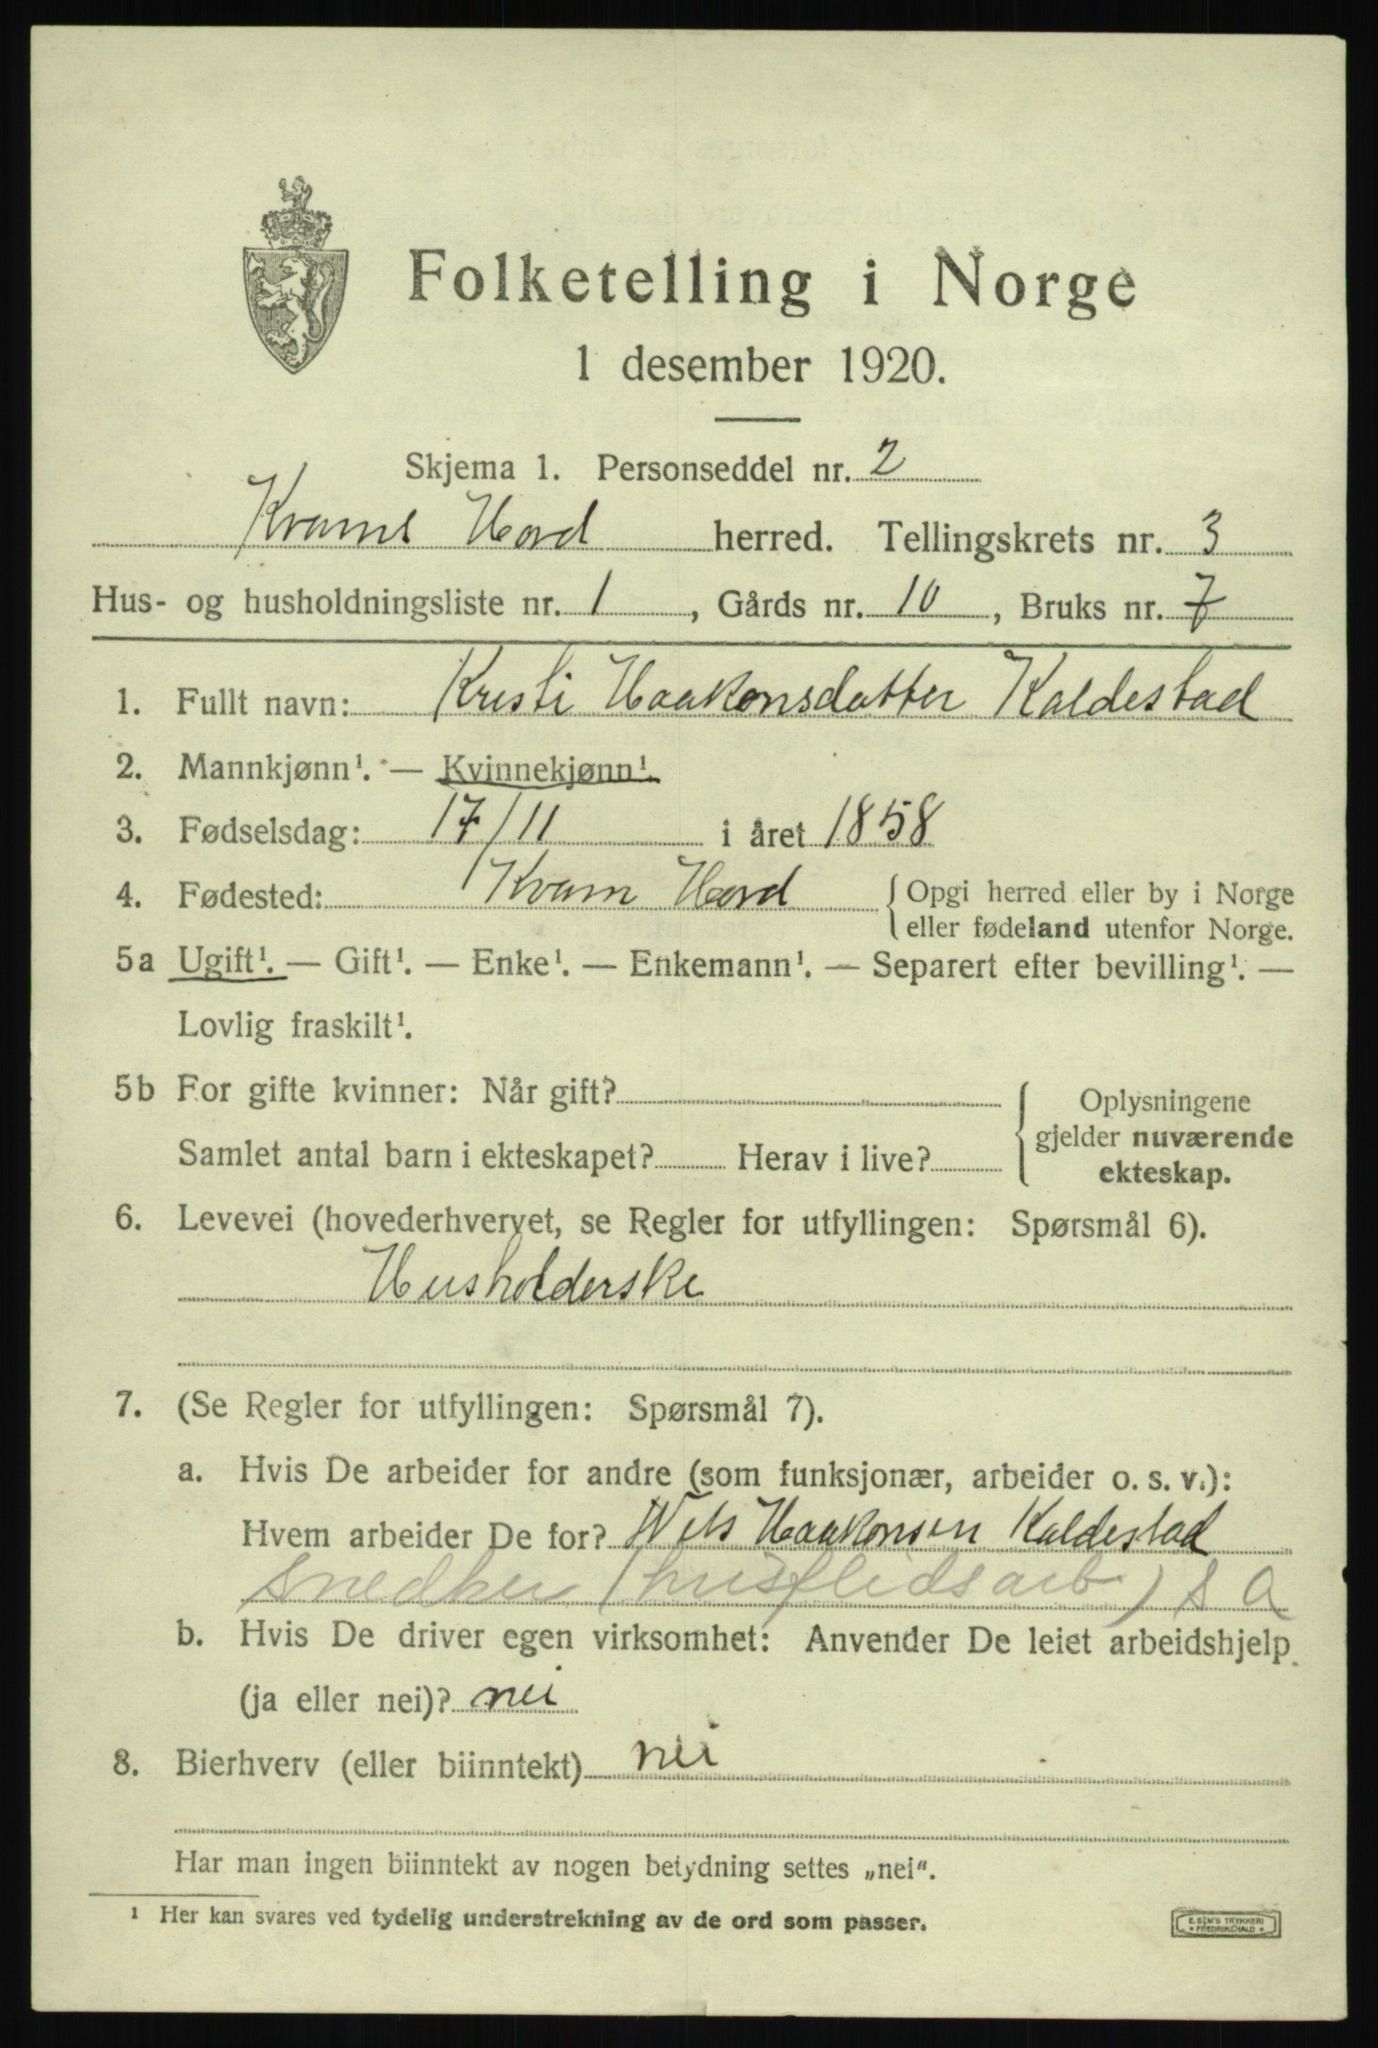 Folketelling i Norge
1 desember 1920.
Skjema 1. Personseddel nr. 2
Kvam Hord herred. Tellingskrets nr. 3
Hus- og husholdningsliste nr. 1, Gårds nr. 10, Bruks nr. 7
1. Fullt navn: Kristi Haakonsdatter Kaldestad
2. Mannkjønn¹. — Kvinnekjønn¹.
3. Fødselsdag: 17/11 i året 1858
4. Fødested: Kvam Hord { Opgi herred eller by i Norge
eller fødeland utenfor Norge.
5a Ugift¹. — Gift¹. — Enke¹. — Enkemann¹. — Separert efter bevilling¹. —
Lovlig fraskilt¹.
5b For gifte kvinner: Når gift? { Oplysningene
gjelder nuværende
Samlet antal barn i ekteskapet? Herav i live?
ekteskap.
6. Levevei (hovederhvervet, se Regler for utfyllingen: Spørsmål 6).
Husholderske
7. (Se Regler for utfyllingen: Spørsmål 7).
a. Hvis De arbeider for andre (som funksjonær, arbeider o. s. v.):
Hvem arbeider De for? Nils Haakonsen Kaldestad
snedker (husflidsarb.) s A
b. Hvis De driver egen virksomhet: Anvender De leiet arbeidshjelp
(ja eller nei)? nei
8. Bierhverv (eller biinntekt) nei
Har man ingen biinntekt av nogen betydning settes „nei".
¹ Her kan svares ved tydelig understrekning av de ord som passer.
E. SEM'S TRYKKERI
* FREDRIKSHALD *